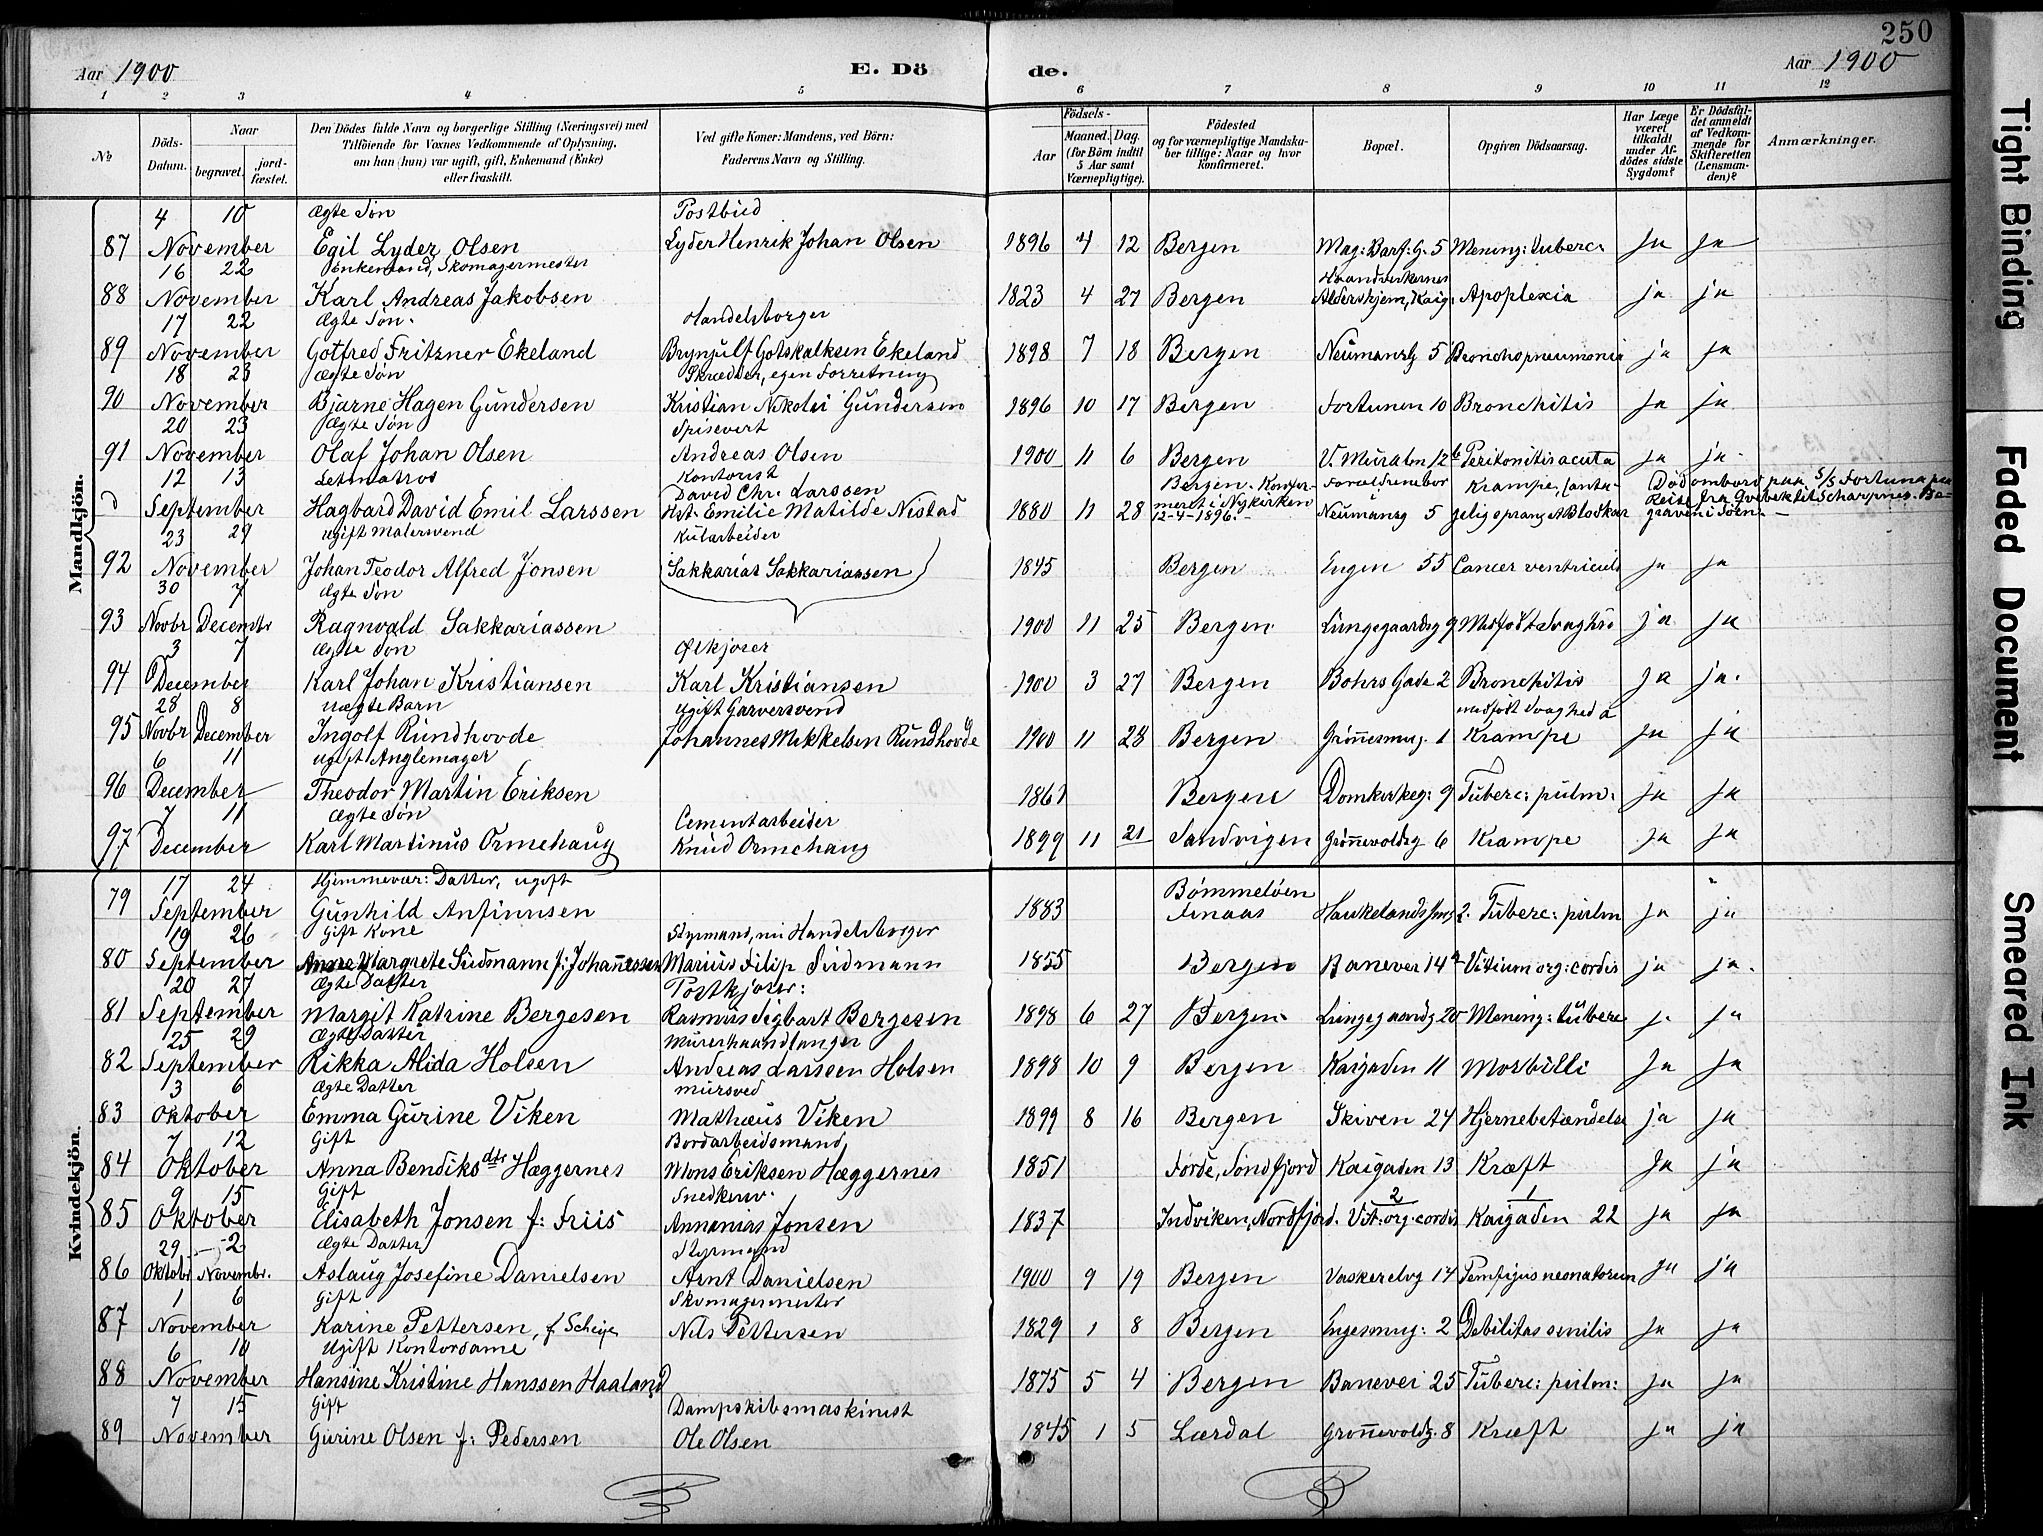 250
Aar 1900
E. Dö
de.
Aar 1900
1 2 3 4 5 6 7 8 9 10 11 12
№
Döds-Datum.
Naar
begravet.
jordfæstet.
Den Dödes fulde Navn og borgerlige Stilling (Næringsvei) med
Tilföiende for Voxnes Vedkommende af Oplysning,
om han (hun) var ugift, gift, Enkemand (Enke)
eller fraskilt.
Ved gifte Koner: Mandens, ved Börn:
Faderens Navn og Stilling.
Födsels-
Aar
Maaned. Dag.
(for Börn indtil
5 Aar samt
Værnepligtige).
Födested
og for værnepligtige Mandskaber tillige: Naar og hvor
konfirmeret.
Bopæl.
Opgiven Dödsaarsag.
Har Læge
været
tilkaldt
under Afdödes sidste
Sygdom?
Er Dödsfaldet anmeldt
af Vedkommende for
Skifteretten
(Lensmanden)?
Anmærkninger.
Mandkjön.
4 10 Ægte Søn Postbud
87 November Egil Lyder Olsen Lyder Henrik Johan Olsen 1896 4 12 Bergen Mag: Barf: G. 5 Mening: tuberc: Ja ja
16 22 Enkemand, Skomagermester Haandverkernes
88 November Karl Andreas Jakobsen 1823 4 27 Bergen Aldershjem, Kaig: Apoplexia ja ja
17 22 Ægte Søn. Handelsborger
89 November Gotfred Fritzner Ekeland Brynjulf Gotskalksen Ekeland 1898 7 18 Bergen Neumansg 5 Bronchopneumonia ja ja
18 23 Ægte Søn Skrædder, egen Forretning
90 November Bjarne Hagen Gundersen Kristian Nikolai Gundersen 1896 10 17 Bergen Fortunen 10 Bronchitis Ja ja
20 23 Ægte Søn Spisevert
91 November Olaf Johan Olsen Andreas Olsen 1900 11 6 Bergen V. Muralm. 12 b Peritonitis acuta ja ja
12 13 Letmatros Kontorist
David Chr. Larssen Bergen. Konfirmeret i Nykirken 12-4-1896. Forældrenebor Krampe, Død ombord paa S/S Fortuna paa
d September Hagbard David Emil Larssen Hst. Emilie Matilde Nistad 1880 11 28 Neumansg 5 Reise fra
23 29 ugift Malersvend Kularbeider
92 November Johan Teodor Alfred Jonsen 1845 Bergen Engen 55 Cancer ventriculi ja ja
30 7 Ægte Søn Sakkarias Sakkariassen
93 Novbr Decembr Ragnvald Sakkariassen 1900 11 25 Bergen Lungegaardsg 9 Medfødt Svaghed ja ja
3 7 Ægte Søn Ølkjører
94 December Karl Johan Kristiansen Karl Kristiansen 1900 3 27 Bergen Bohrs Gade 2 Bronchitis ja ja.
28 8 Uægte Barn Ugift Garversvend medfødt Svaghed &
95 Novbr December Ingolf Rundhovde Johannes Mikkelsen Rundhovde 1900 11 28 Bergen Grønnesmug. 1 Krampe ja ja
6 11 ugift Anglemager
96 December Theodor Martin Eriksen 1861 Bergen Domkirkeg: 9 Tuberc: pulm: ja ja
7 11 Ægte Søn Cementarbeider
97 December Karl Martinus Ormehaug Knud Ormehaug 1899 11 21 Sandvigen Grønnevoldsg 6 Krampe ja ja
Kvindekjön.
17 24 Hjemmevær: Datter, ugift Bømmeløen
79 September Gunhild Anfinnsen 1883 Finaas Haukelands 2. Tuberc: pulm ja ja
19 26 Gift Kone Styrmand, nu Handelsborger
80 September Anne Margrete Sudmann f: Johannessen Marius Filip Sudmann 1855 Bergen Banevei 14 a Vitium org: cordis ja ja.
20 27 Ægte Datter Postkjører:
81 September Margit Katrine Bergesen Rasmus Sigbart Bergesen 1898 6 27 Bergen Lungegaardsg 20 Mening: tuberc ja ja
25 29 Ægte Datter Murerhaandlanger
82 September Rikka Alida Holsen Andreas Larssen Holsen 1898 10 9 Bergen Kaigaden 11 Morbilli Ja ja
3 6 Ægte Datter Mursved
83 Oktober Emma Gurine Viken Mathæus Viken 1899 8 16 Bergen Skiven 24 Hjernebetændelse ja ja
7 12 Gift Bordarbeidsmand
84 Oktober Anna Bendiksdtr Hæggernes Mons Eriksen Hæggernes 1851 Førde, Søndfjord Kaigaden 13 Kræft Ja ja
9 15 Gift Snedkersv. 2 1
85 Oktober Elisabeth Jonsen f: Friis Annanias Jonsen 1837 Indviken, Nordfjord. Vit: org: cordis Kaigaden 22 ja ja
29 2 Ægte Datter Styrmand
86 Oktobr Novembr. Aslaug Josefine Danielsen Arnt Danielsen 1900 9 19 Bergen Vaskerelvg 14 Pemfigus neonatorum ja ja
1 6 Gift Skomagermester
87 November Karine Pettersen, f Nils Pettersen 1829 1 8 Bergen Engesmug: 2 Debilitas senilis ja ja
6 10 Ugift Kontordame
88 November Hansine Kristine Hanssen Haaland 1875 5 4 Bergen Banevei 25 Tuberc: pulm: ja ja
7 15 Gift Dampskibsmaskinist
89 November Gurine Olsen f: Pedersen Ole Olsen 1845 1 5 Lærdal Grønnevoldsg. 8 Kræft ja ja
Tight Binding
Faded Document
Smeared Ink